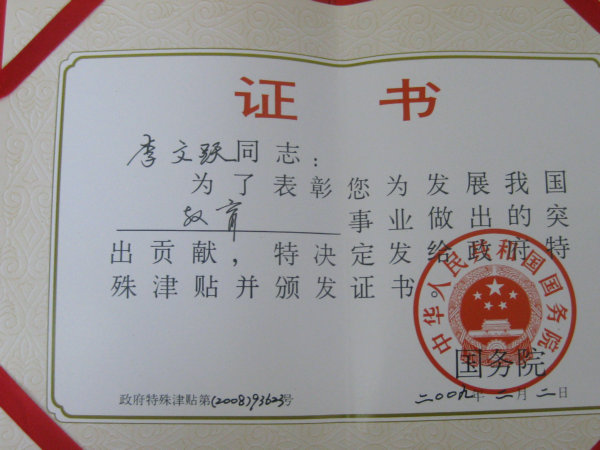 证书
李文跃同志：
为了表彰您为发展我国
教育事业做出的突
出贡献，特决定发给政府特
殊津贴并颁发证书。
中华人民共和国国务院
国务院
政府特殊津贴第(2008)93623号
二〇〇九年二月二日